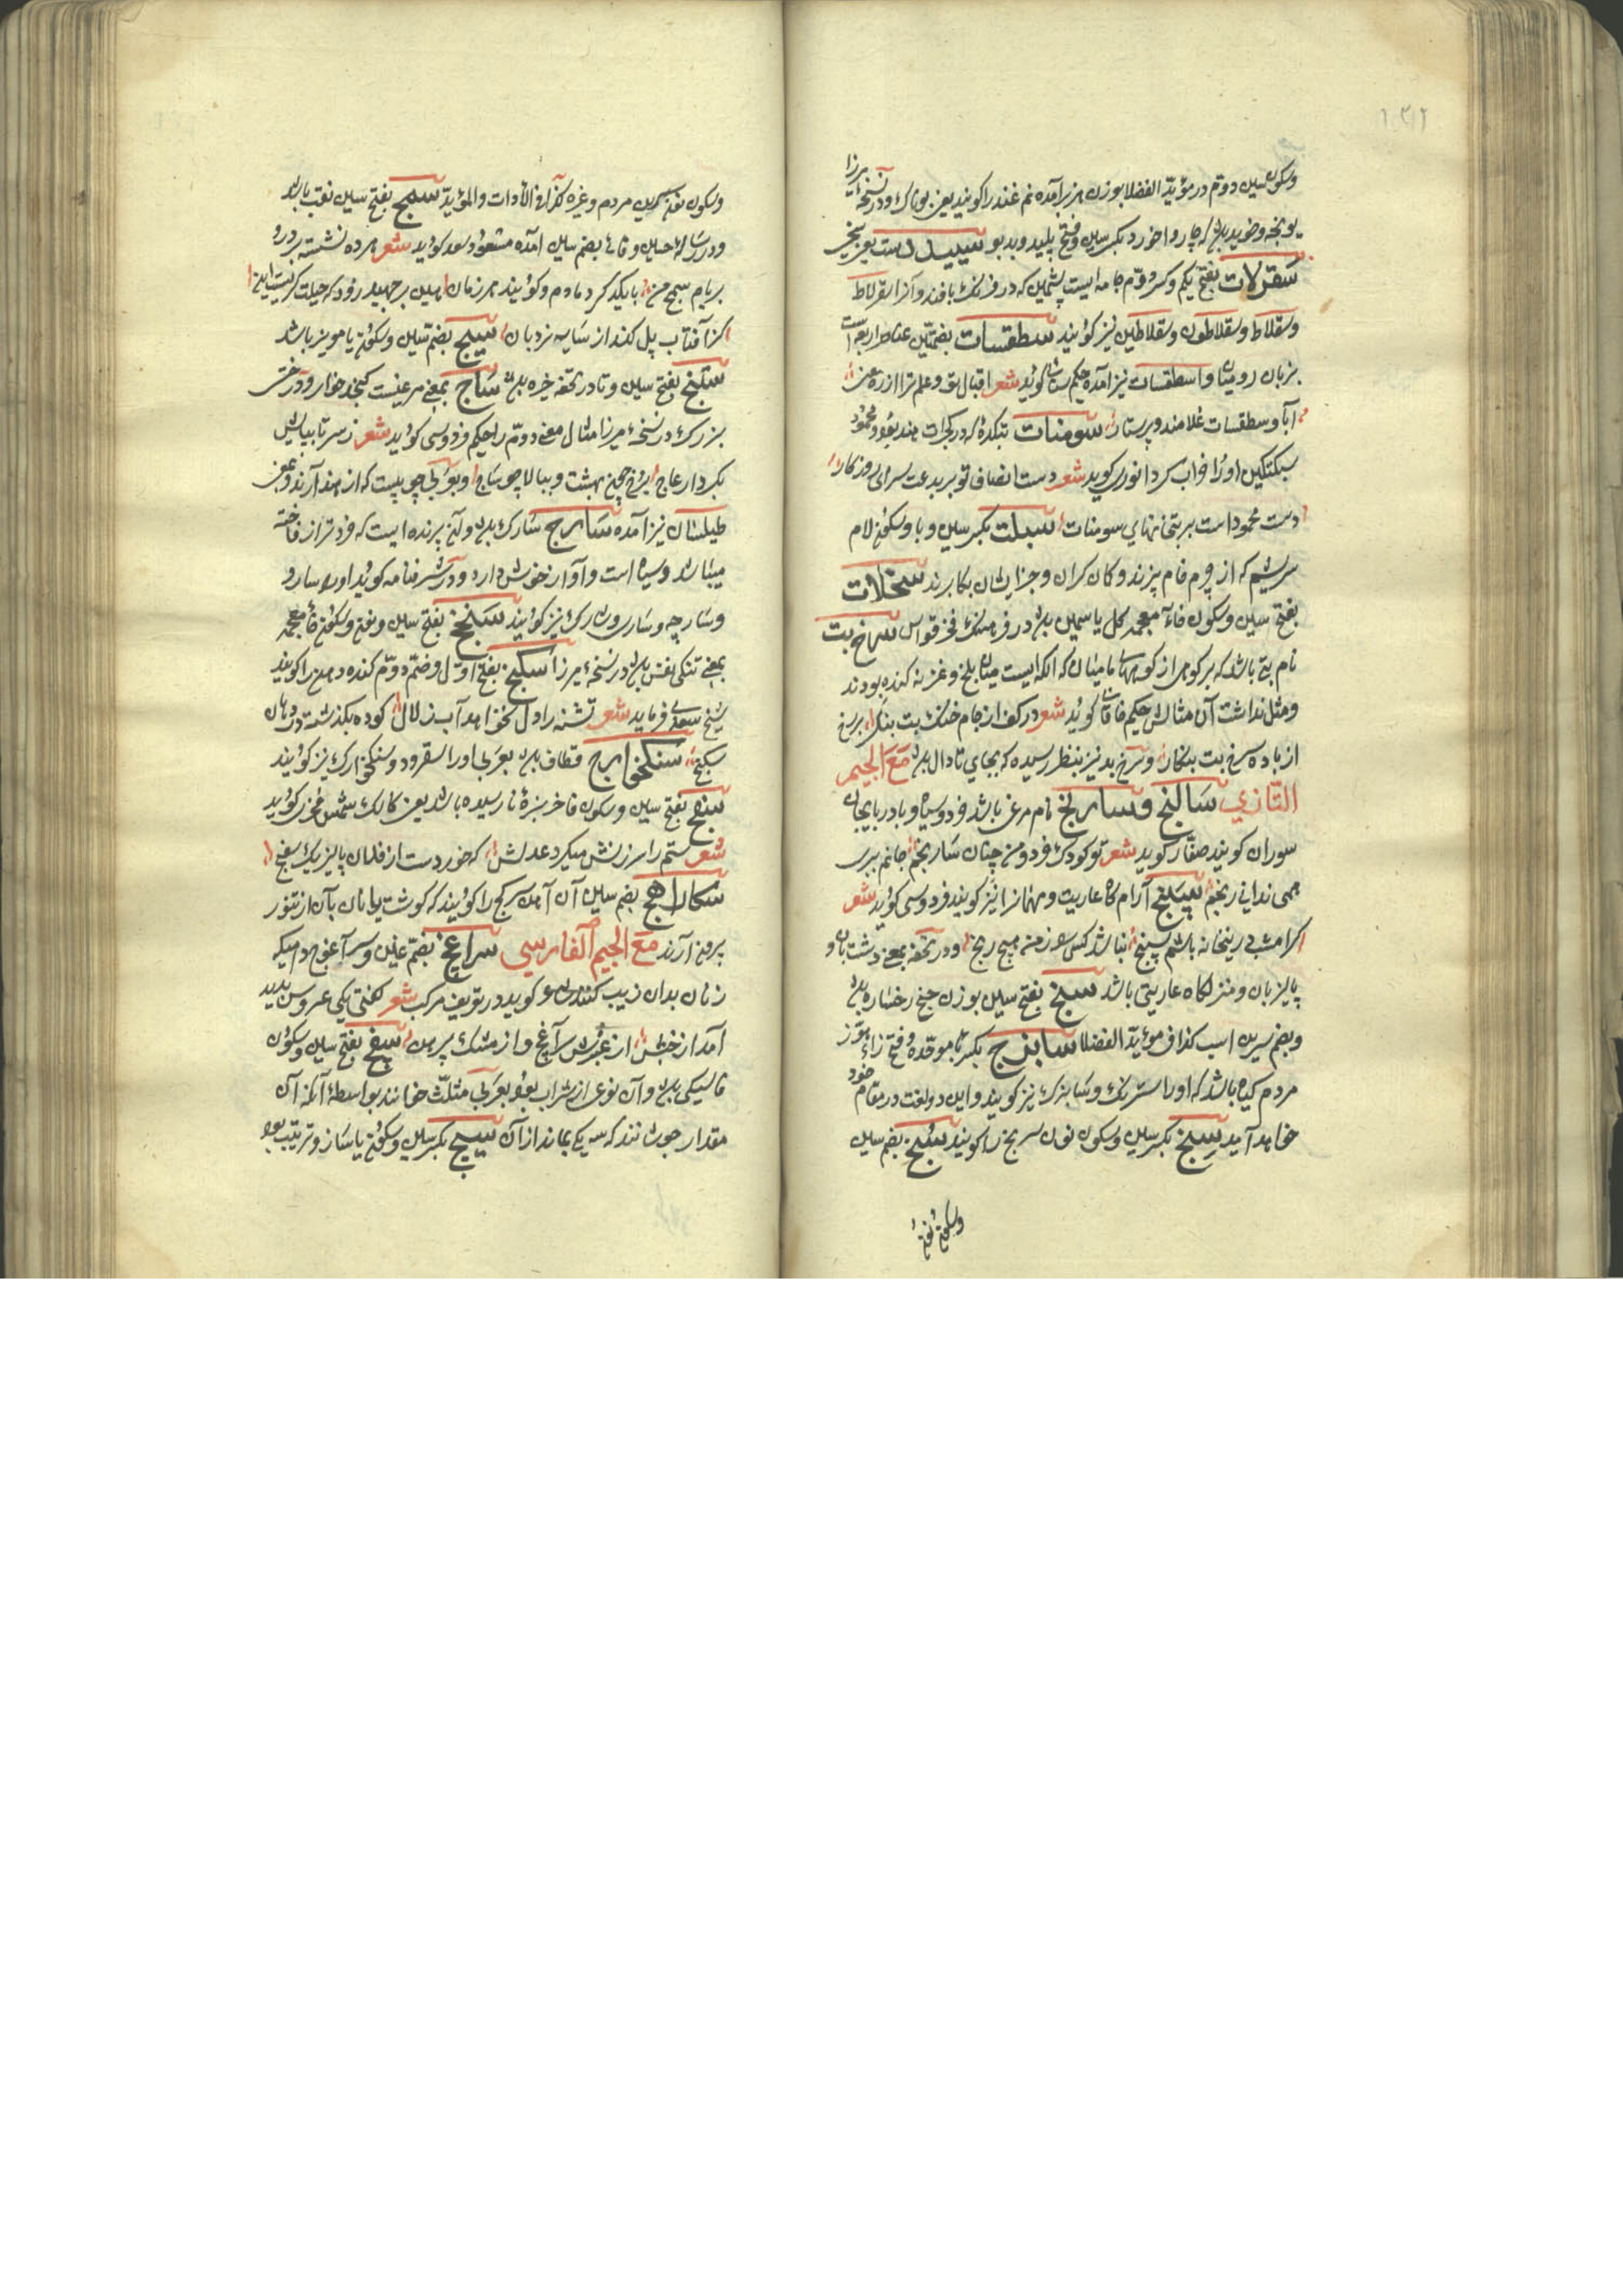 وسکون سین دوم در مؤید الفضلا بوزن برآمده نم غند را کویند یعنی ودر نسخهٔ میرزا
یونجه وخوید باشد که چاروا خورد بکسر سین وفتح پلید وبدبو سیبل
سقرلات بفتح یکم وکسر دوّم جامه ایست پشمین که در فرنک بافند وآنرا سقرلاط
وسقلاط وسقلاطون وسقلاطین نیز کویند سطقسات بضمتین عناصر اربعه است
بزبان رومیان واسطقسات نیز آمده حکیم سنائی کوید شعر اقبال
آبا وسطقسات غلامند وپرستار سومنات بتکدهٔ که در کجرات هند بود محمود
سبکتکین اورا خراب کرد انوری کوید شعر دست انصاف تو بر بدعت سرای روزکار
دست محمود است بر بتخانهای سومنات سبلت بکسر سین وبا وسکون لام
سریشم که از چرم خام پزند وکان کران وجز ایشان بکار برند سخلات
بفتح سین وسکون خاء معجمه کل یاسمین باشد در فرهنک فخر قواس سرخ بت
نام بتی باشد که بر کوهی از کوههای بامیان که الکه ایست میان بلخ وغزنه کنده بودند
ومثل نداشت آن مثالش حکیم خاقانی کوید شعر در کف از جام خنک بت بنکر بر رخ
از باده سرخ بت بنکار وسرخ بد نیز بنظر رسیده که بجای تا دال باشد مع الجیم
التازی سالنج وسارنج نام مرغی باشد خرد وسیاه وبادربایجان
سوران کویند صفار کوید شعر تو کودک خرد ومن چنان سارنجم جانم ببری
همی ندانی رنجم سپنج آرام کاه عاریت ومهمانرا نیز کویند فردوسی کوید شعر
کر امشب درین خانه باشم سپنج نباشد کس از من هیچ رنج ودر تحفه بمعنی دشتبان و
پالیزبان ومنزلکاه عاریتی باشد سنج بفتح سین بوزن رخساره باشد
وبضم سرین اسب کذا فی مؤید الفضلا سابزج بکسر با موحّده وفتح زاء هوز
مردم کیاه باشد که اورا استرنک وسابیزک نیز کویند واین دو لغت در مقام خود
خواهد آمد سنج بکسر سین وسکون نون سرنج را کویند سنج بضم سین
وسکون نون
وسکون نون سرین مردم وغیره کذا فی الأدات والمؤید سمج بفتح سین نقب باشد
ودر رسالهٔ حسین وفائی بضم سین آمده مسعود سعد کوید شعر مرده نشسته بر در و
بر بام سمج من با یکدکر دمادم وکویند هر زمان هین برجهید زود که حیلت کریست این
کز آفتاب پل کند از سایه نردبان سیج بضم سین وسکون یا مویز باشد
ستنج بفتح سین وتا در تحفه خیره باشد ساج بمعنی مرغیست کنجد خوار ودرختی
بزرک در نسخهٔ میرزا مثال معنی دوم را حکیم فردوسی کوید شعر ز سر تا بپایش
بکردار عاج برخ چون بهشت وببالا چو ساج وبعربی چوبیست که از هند آرند وبمعنی
طیلسان نیز آمده سارج سارک باشد وآن پرنده ایست که خردتر از فاخته
میباشد وسیاه است وآواز خوش دارد ودر شرفنامه کوید اورا سارو
وسارچه وساری وشارک نیز کویند سنخج بفتح سین ونون وسکون خاء معجمه
بمعنی تنکی نفس باشد در نسخهٔ میرزا سکنج بفتح اوّل وضم دوّم کنده دهن را کویند
شیخ سعدی فرماید شعر تشنه را دل نخواهد آب زلال کوزه بکذشته در دهان
سکنج سنکخوارج قطاف باشد بعربی اورا اسفرود وسنکخوارک نیز کویند
سفج بفتح سین وسکون فا خربزهٔ نارسیده باشد یعنی کالک شمس فخری کوید
شعر ستم را سرزنش میکرد عدلش که خوردست از فلان پالیز یک سفج
سکاراهج بضم سین آن آهن سرکج را کویند که کوشت یا نان بآن از تنور
بیرون آرند مع الجیم الفارسی سراغچ بضم غین وسرآغوچ دام
زنان بدان زیب کنند کوید در تعریف مرکب شعر کفتی یکی عروس پدید
آمد از حبش از عنبرش سرآغچ واز مشک پیرهن سفچ بفتح سین وسکون
فا سیکی باشد وآن نوعی از شراب بود بعربی مثلث خوانند بواسطهٔ آنکه آن
مقدار جوشانند که سه یکی بماند از آن سیج بکسر سین وسکون یا ساز وترتیب بود